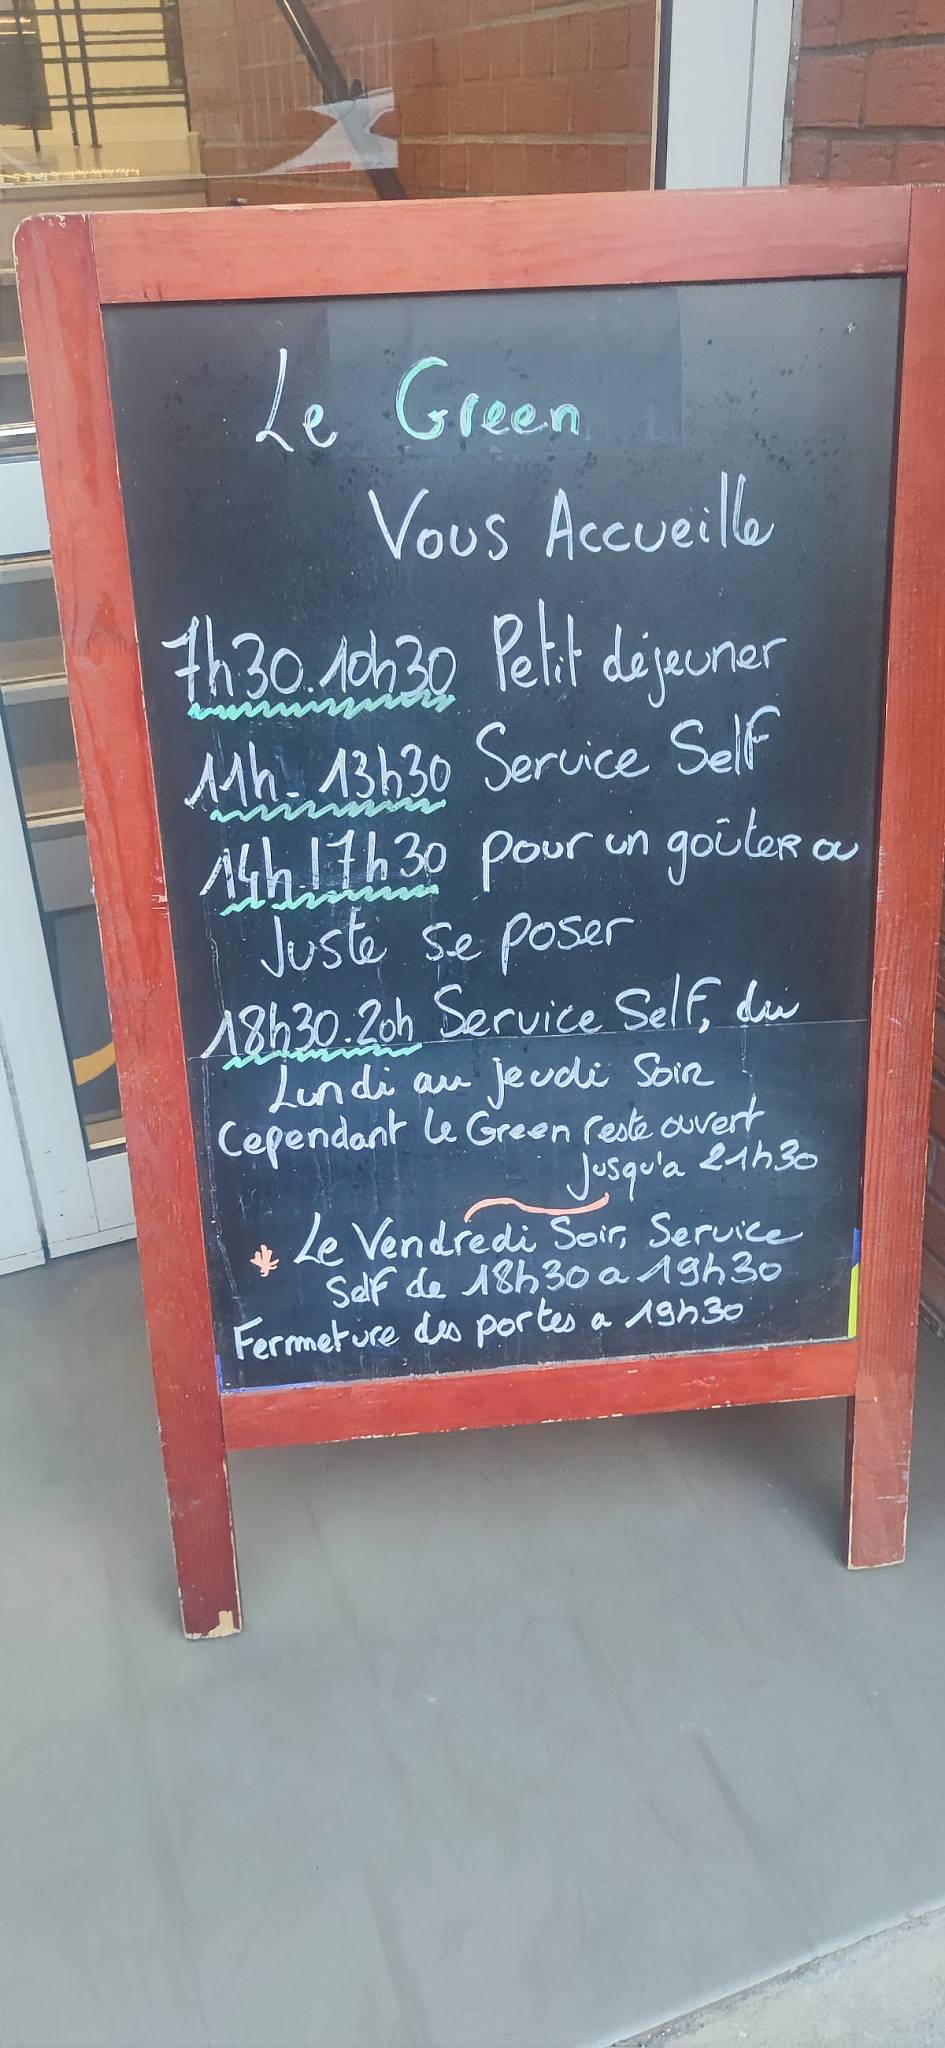 Le Green
Vous Accueille
7h30.10h30 Petit déjeuner
11h. 13h30 Service Self
14h.17h30 pour un goûter ou
Juste se poser
18h30.20h Service Self, du
Lundi au jeudi Soir
Cependant le Green reste ouvert
jusqu'a 21h30
Le Vendredi Soir, Service
Self de 18h30 a 19h30
Fermeture des portes a 19h30